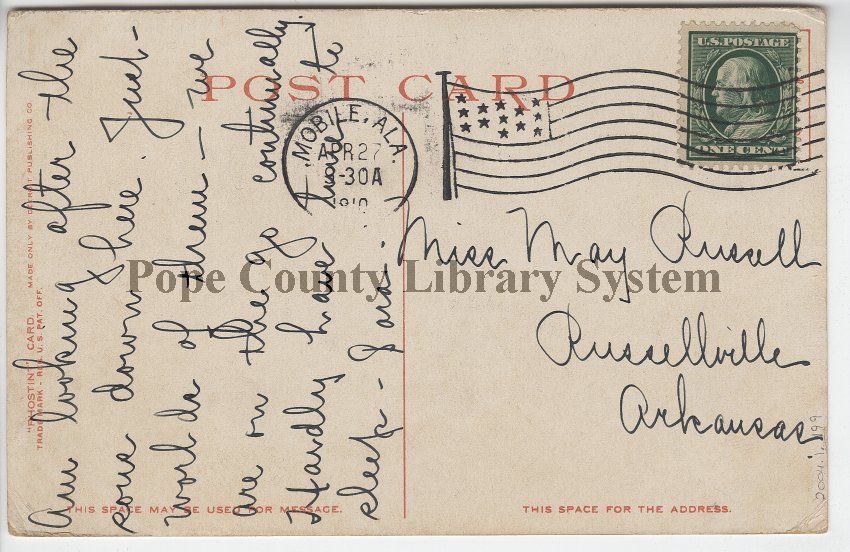 POST CARD
U.S. POSTAGE
ONE CENT
MOBILE, ALA.
APR 27
8-30A
1910
Am looking after the
sons down here. Just
worlds of them - we
are on the go continually.
Hardly have time to
sleep -
Miss May Russell
Russellville
Arkansas.
Pope County Library System
"PHOSTINT" CARD. MADE ONLY BY DETROIT PUBLISHING CO.
TRADE MARK - REG. U.S. PAT. OFF.
THIS SPACE MAY BE USED FOR MESSAGE.
THIS SPACE FOR THE ADDRESS.